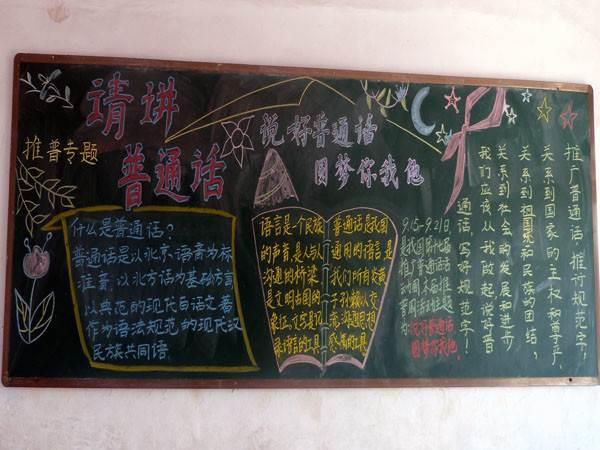 请讲
普通话
推普专题
说好普通话
圆梦你我他
什么是普通话?
普通话是以北京语音为标
准音,以北方话为基础方言
以典范的现代白话文著
作为语法规范的现代汉
民族共同语。
语言是一个民族
的声音,是人与人
沟通的桥梁
是文明古国的
象征,文字是记
录语言的工具
普通话是我国
通用的语言是
我们所有炎黄
子孙
流沟通思想
感情的工具
9.15-9.21日
是我国第
推广普通话
为
说好普通话
圆梦你我他
推广普通话,推行规范字!
关系到国家的主权和尊严,
关系到祖国和民族的团结,
关系到社会的发展和进步
我们应该从我做起说好普
通话,写好规范字!